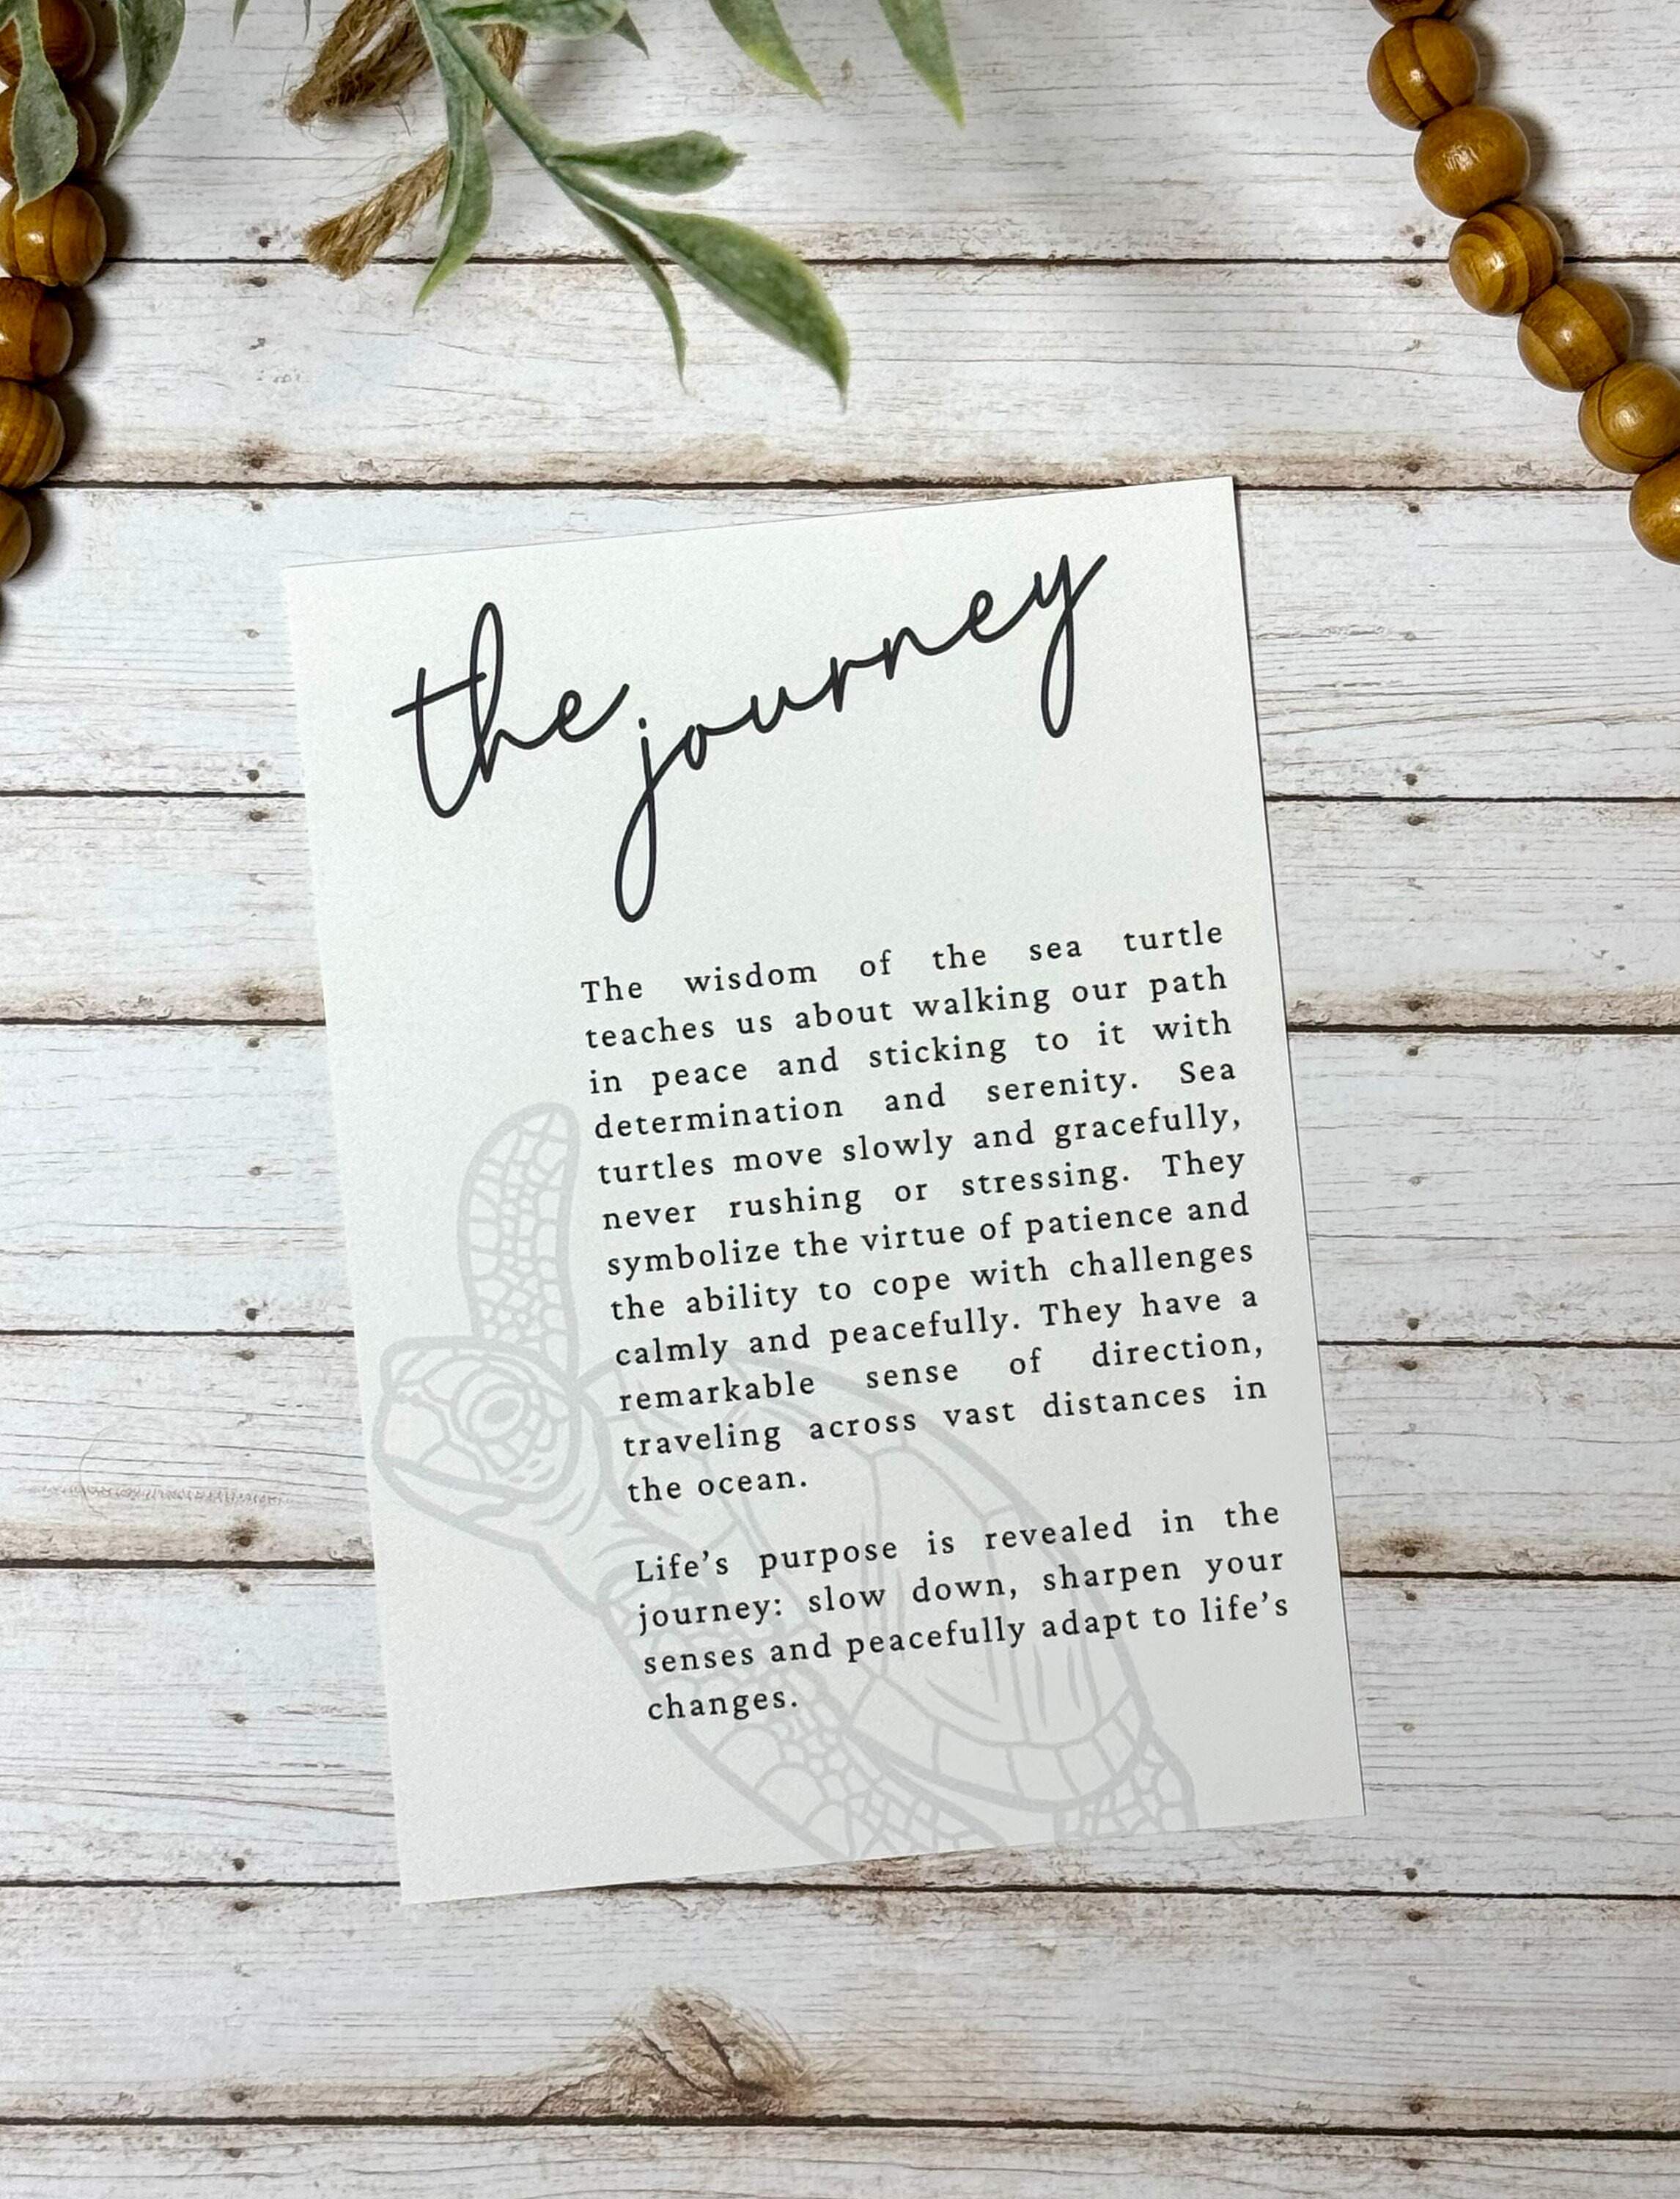 the journey
The wisdom of the sea turtle
teaches us about walking our path
in peace and sticking to it with
determination and serenity. Sea
turtles move slowly and gracefully,
never rushing or stressing. They
symbolize the virtue of patience and
the ability to cope with challenges
calmly and peacefully. They have a
remarkable sense of direction,
traveling across vast distances in
the ocean.
Life’s purpose is revealed in the
journey: slow down, sharpen your
senses and peacefully adapt to life’s
changes.